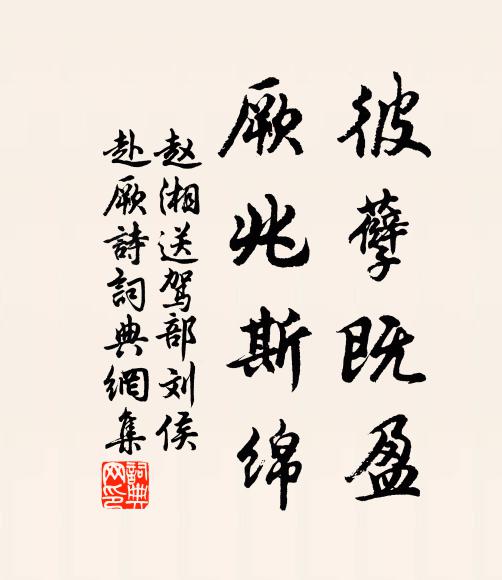 彼孽既盈
厥兆斯绵
赵湘送驾部刘侯
赴厥詩詞典網集
詞典网印